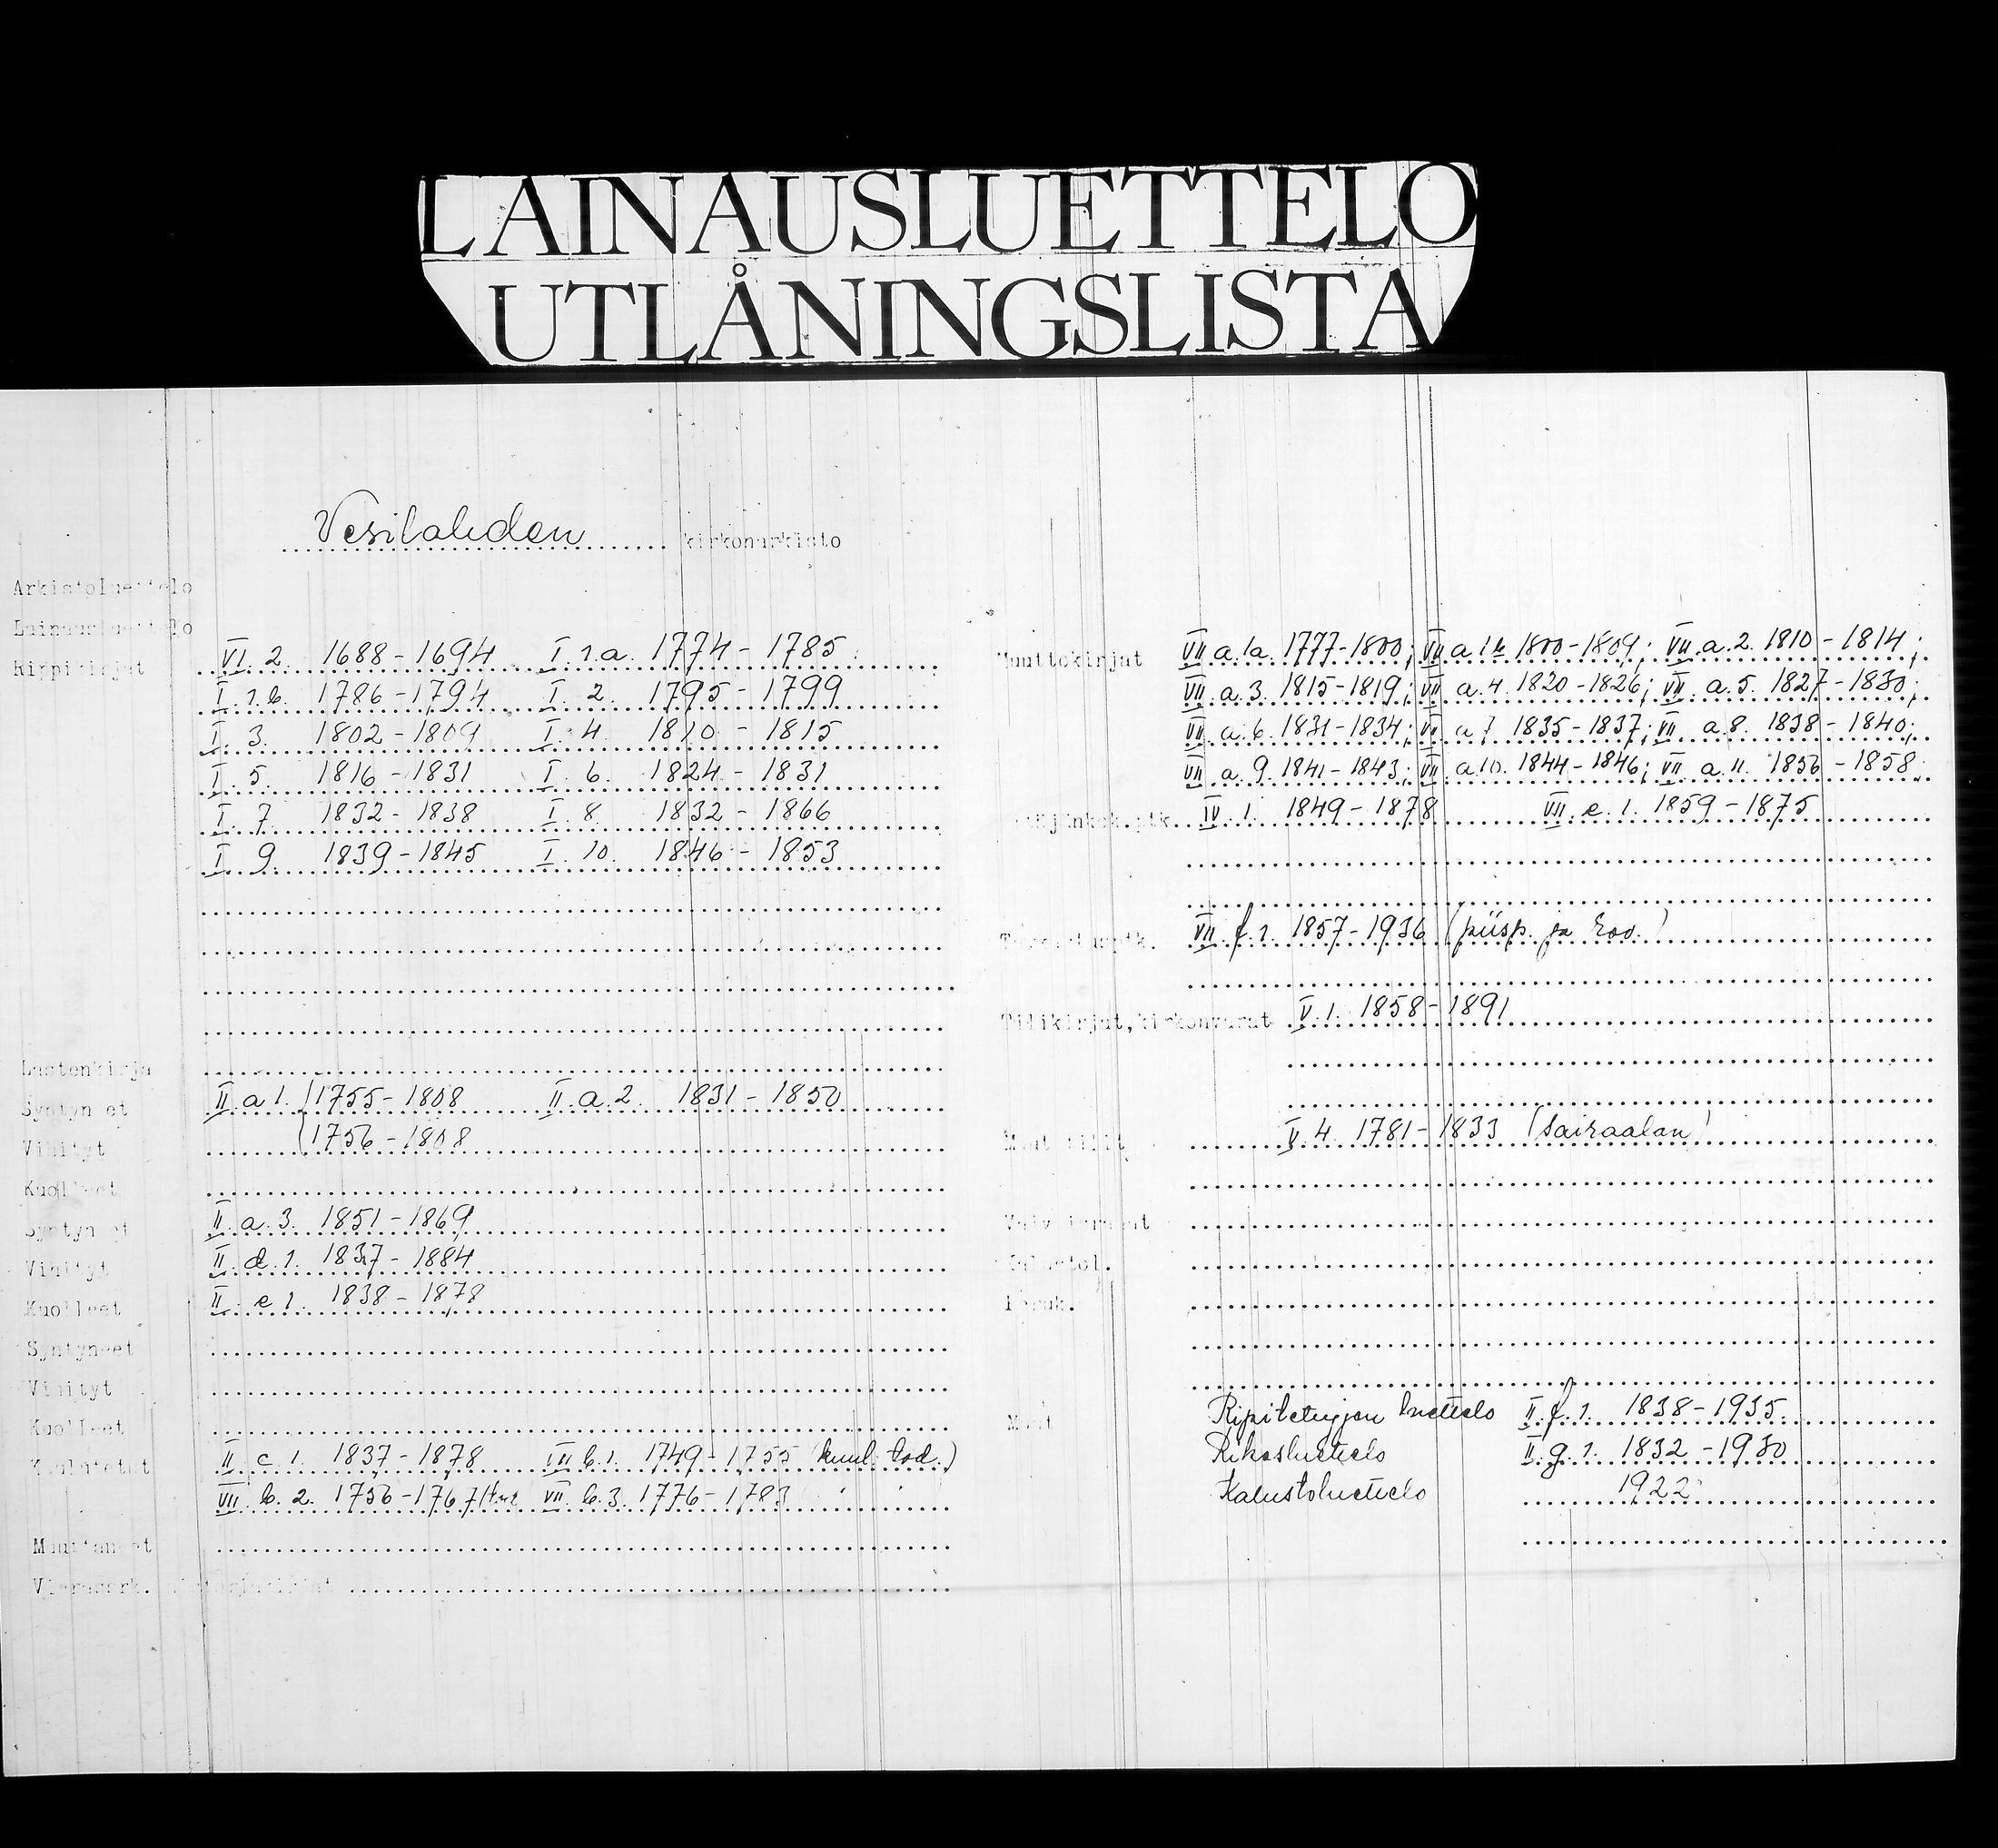 LAINAUSLUETTELO
UTLÅNINGSLISTA
Vesilahden kirkonarkisto
Arkistoluettelo
Lainausluettelo
Rippikirjat VI. 2. 1688-1694 I. 1.a. 1774-1785
I. 1.b. 1786-1794 I. 2. 1795-1799
I. 3. 1802-1809 I. 4. 1810-1815
I. 5. 1816-1831 I. 6. 1824-1831
I. 7. 1832-1838 I. 8. 1832-1866
I. 9. 1839-1845 I. 10. 1846-1853
Lastenkirja
Syntyneet II. a 1. (1755-1808 II. a. 2. 1831-1850
Vihityt (1756-1808
Kuolleet
Syntyneet II. a. 3. 1851-1869
Vihityt II. d. 1. 1837-1884
Kuolleet II. e 1. 1838-1878
Syntyneet
Vihityt
Kuolleet
Kuulutetut II. c. 1. 1837-1878 VII b. 1. 1749-1755 (kuul. tod.)
VII. b. 2. 1756-1767 VII. b. 3. 1776-1783 " "
Muuttaneet
Vierasserk.
Muuttokirjat VII a. 1a. 1777-1800; VII a 1b 1800-1809; VII. a. 2. 1810-1814;
VII. a. 3. 1815-1819; VII a. 4. 1820-1826; VII. a. 5. 1827-1830;
VII. a. 6. 1831-1834; VII a 7 1835-1837; VII. a. 8. 1838-1840;
VII. a. 9. 1841-1843; VII. a. 10. 1844-1846; VII a. 11. 1856-1858;
Pitäjänkok.ptk. IV. 1. 1849-1878 VII. e. 1. 1859-1875
Tarkastusptk. VII. f. 1. 1857-1936 (piisp. ja rov.)
Tilikirjat, kirkonvarat V. 1. 1858-1891
Muut tilit V. 4. 1781-1833 (sairaalan)
Vaivaisrahat
Kalustol.
Peruk.
Muut Ripitettyjen luettelo II. f. 1. 1838-1935.
Rikosluettelo II. g. 1. 1832-1930
Kalustoluettelo 1922